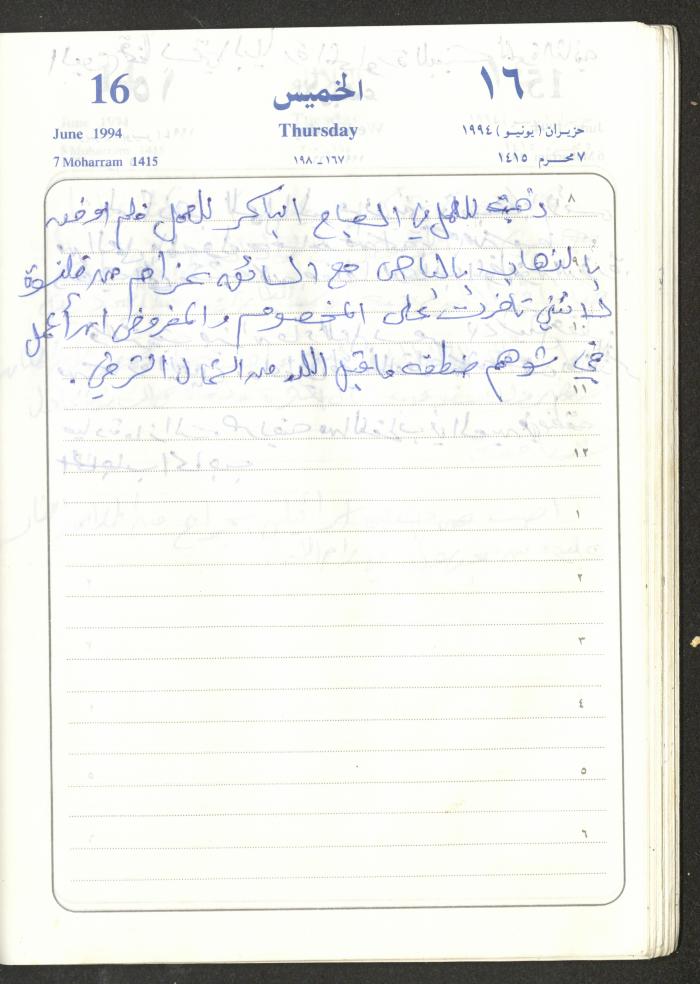 16 الخميس ١٦
June 1994 Thursday حزيران (يونيو) ١٩٩٤
7 Moharram 1415 ١٦٧-١٩٨ ٧ محرم ١٤١٥
٨
ذهبت للعمل في الصباح الباكر للعمل فلم اوفق
٩
بالذهاب بالباص مع السائق عزام من قلنسوة
لانني تأخرت على الخصوم والمفروض ان أعمل
في شوهم منطقة ما قبل اللد من الشمال الشرقي.
١١
١٢
١
٢
٣
٤
٥
٦